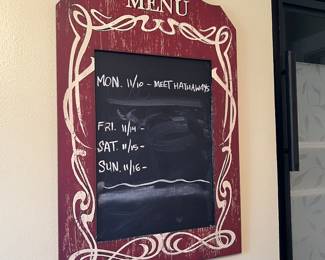 MENU
MON. 11/10 - MEET HATHAWAYS
FRI. 11/14 -
SAT. 11/15 -
SUN. 11/16 -